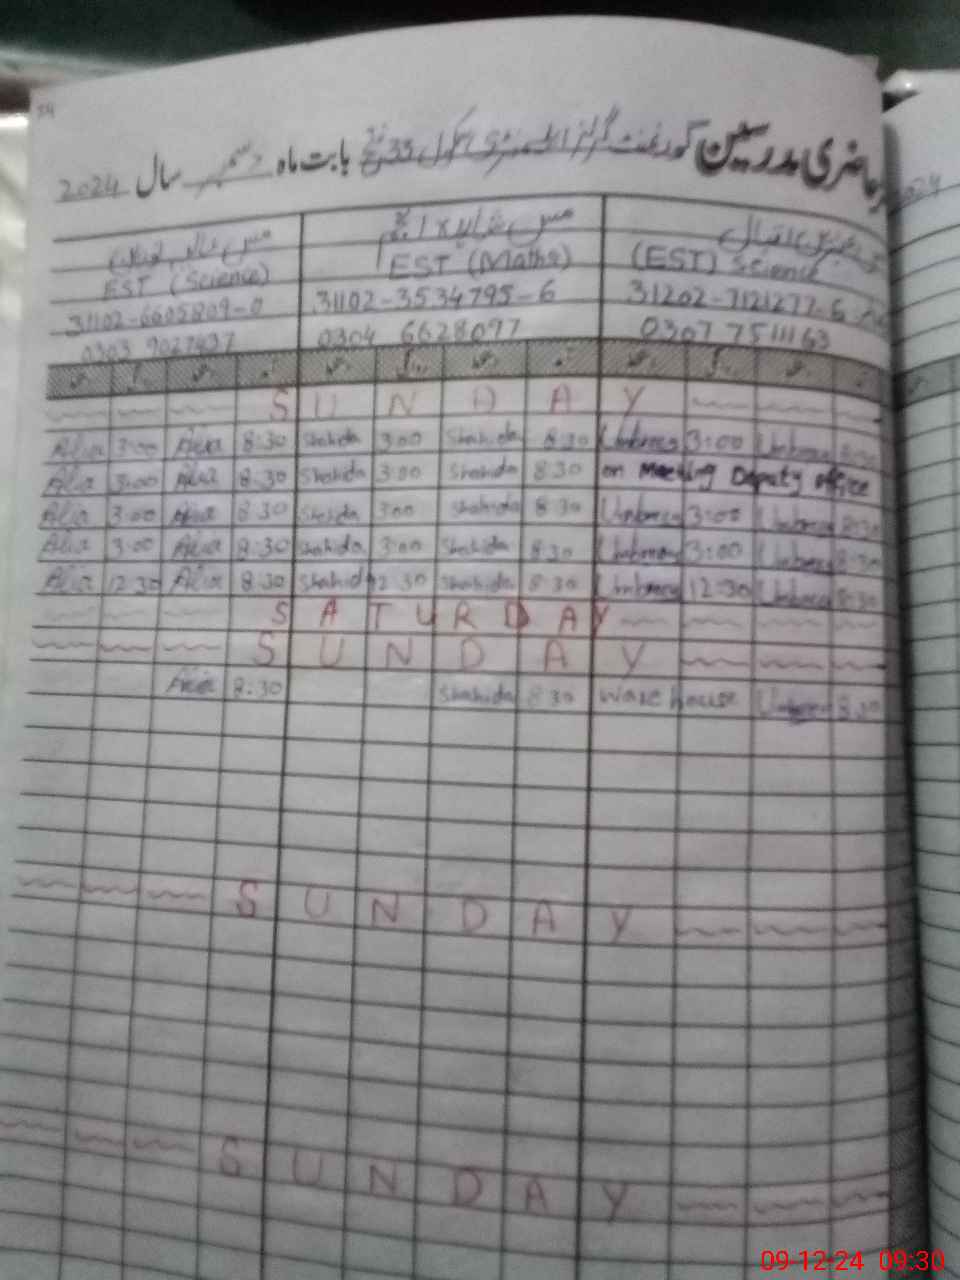 حاضری مدرسین گورنمنٹ گرلز ایلیمنٹری سکول 33 بابت ماہ دسمبر سال 2024
مس شاہدہ انجم
EST (Science) EST (Maths) (EST) Science
31102-6605809-0 31102-3534795-6 31202-7121277-6
0303 9027437 0304 6628097 0307 7511163
S U N D A Y
Alia 3:00 Alia 8:30 Shahida 3:00 Shahida 8:30 Umbreen 3:00 Umbreen 8:30
Alia 3:00 Alia 8:30 Shahida 3:00 Shahida 8:30 on Meeting Deputy office
Alia 3:00 Alia 8:30 Shahida 3:00 Shahida 8:30 Umbreen 3:00 Umbreen 8:30
Alia 3:00 Alia 8:30 Shahida 3:00 Shahida 8:30 Umbreen 3:00 Umbreen 8:30
Alia 12:30 Alia 8:30 Shahida 12:30 Shahida 8:30 Umbreen 12:30 Umbreen 8:30
S A T U R D A Y
S U N D A Y
Alia 8:30 Shahida 8:30 Ware house Umbreen 8:30
S U N D A Y
S U N D A Y
09-12-24 09:30